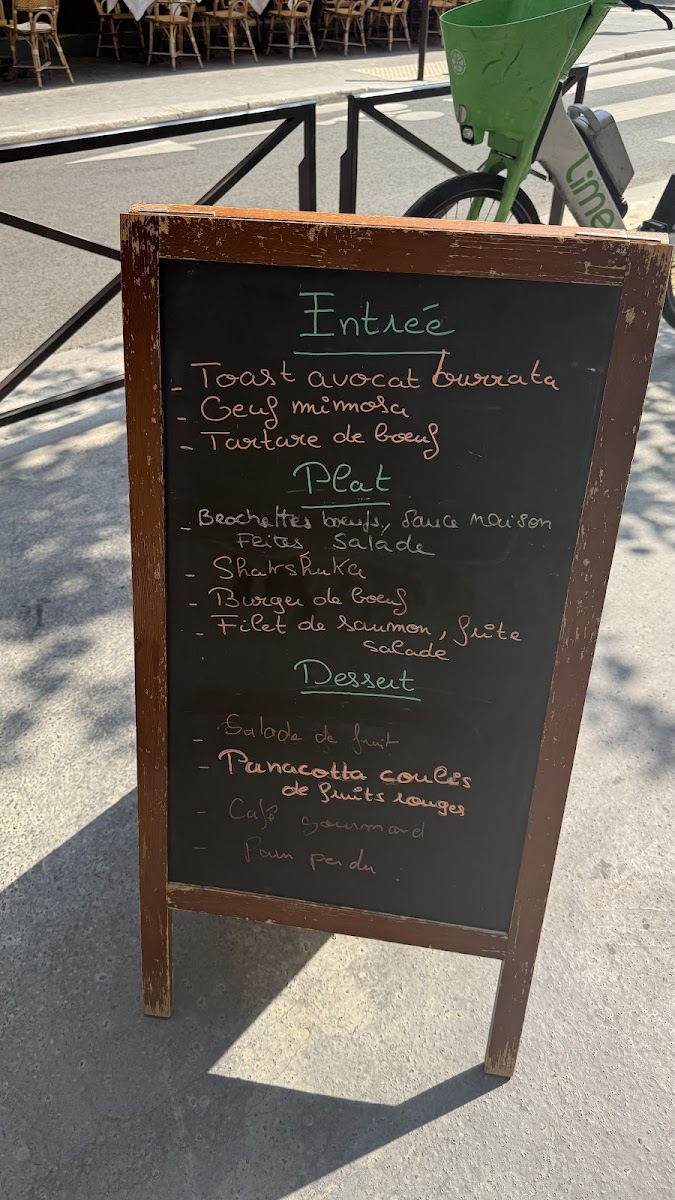 Lime
Entrée
- Toast avocat burrata
- Oeuf mimosa
- Tartare de boeuf
Plat
- Brochettes boeufs, Sauce maison
Frites, Salade
- Shakshuka
- Burger de boeuf
- Filet de saumon, frite
salade
Dessert
- Salade de fruit
- Panacotta coulis
de fruits rouges
- Café gourmand
- Pain perdu.